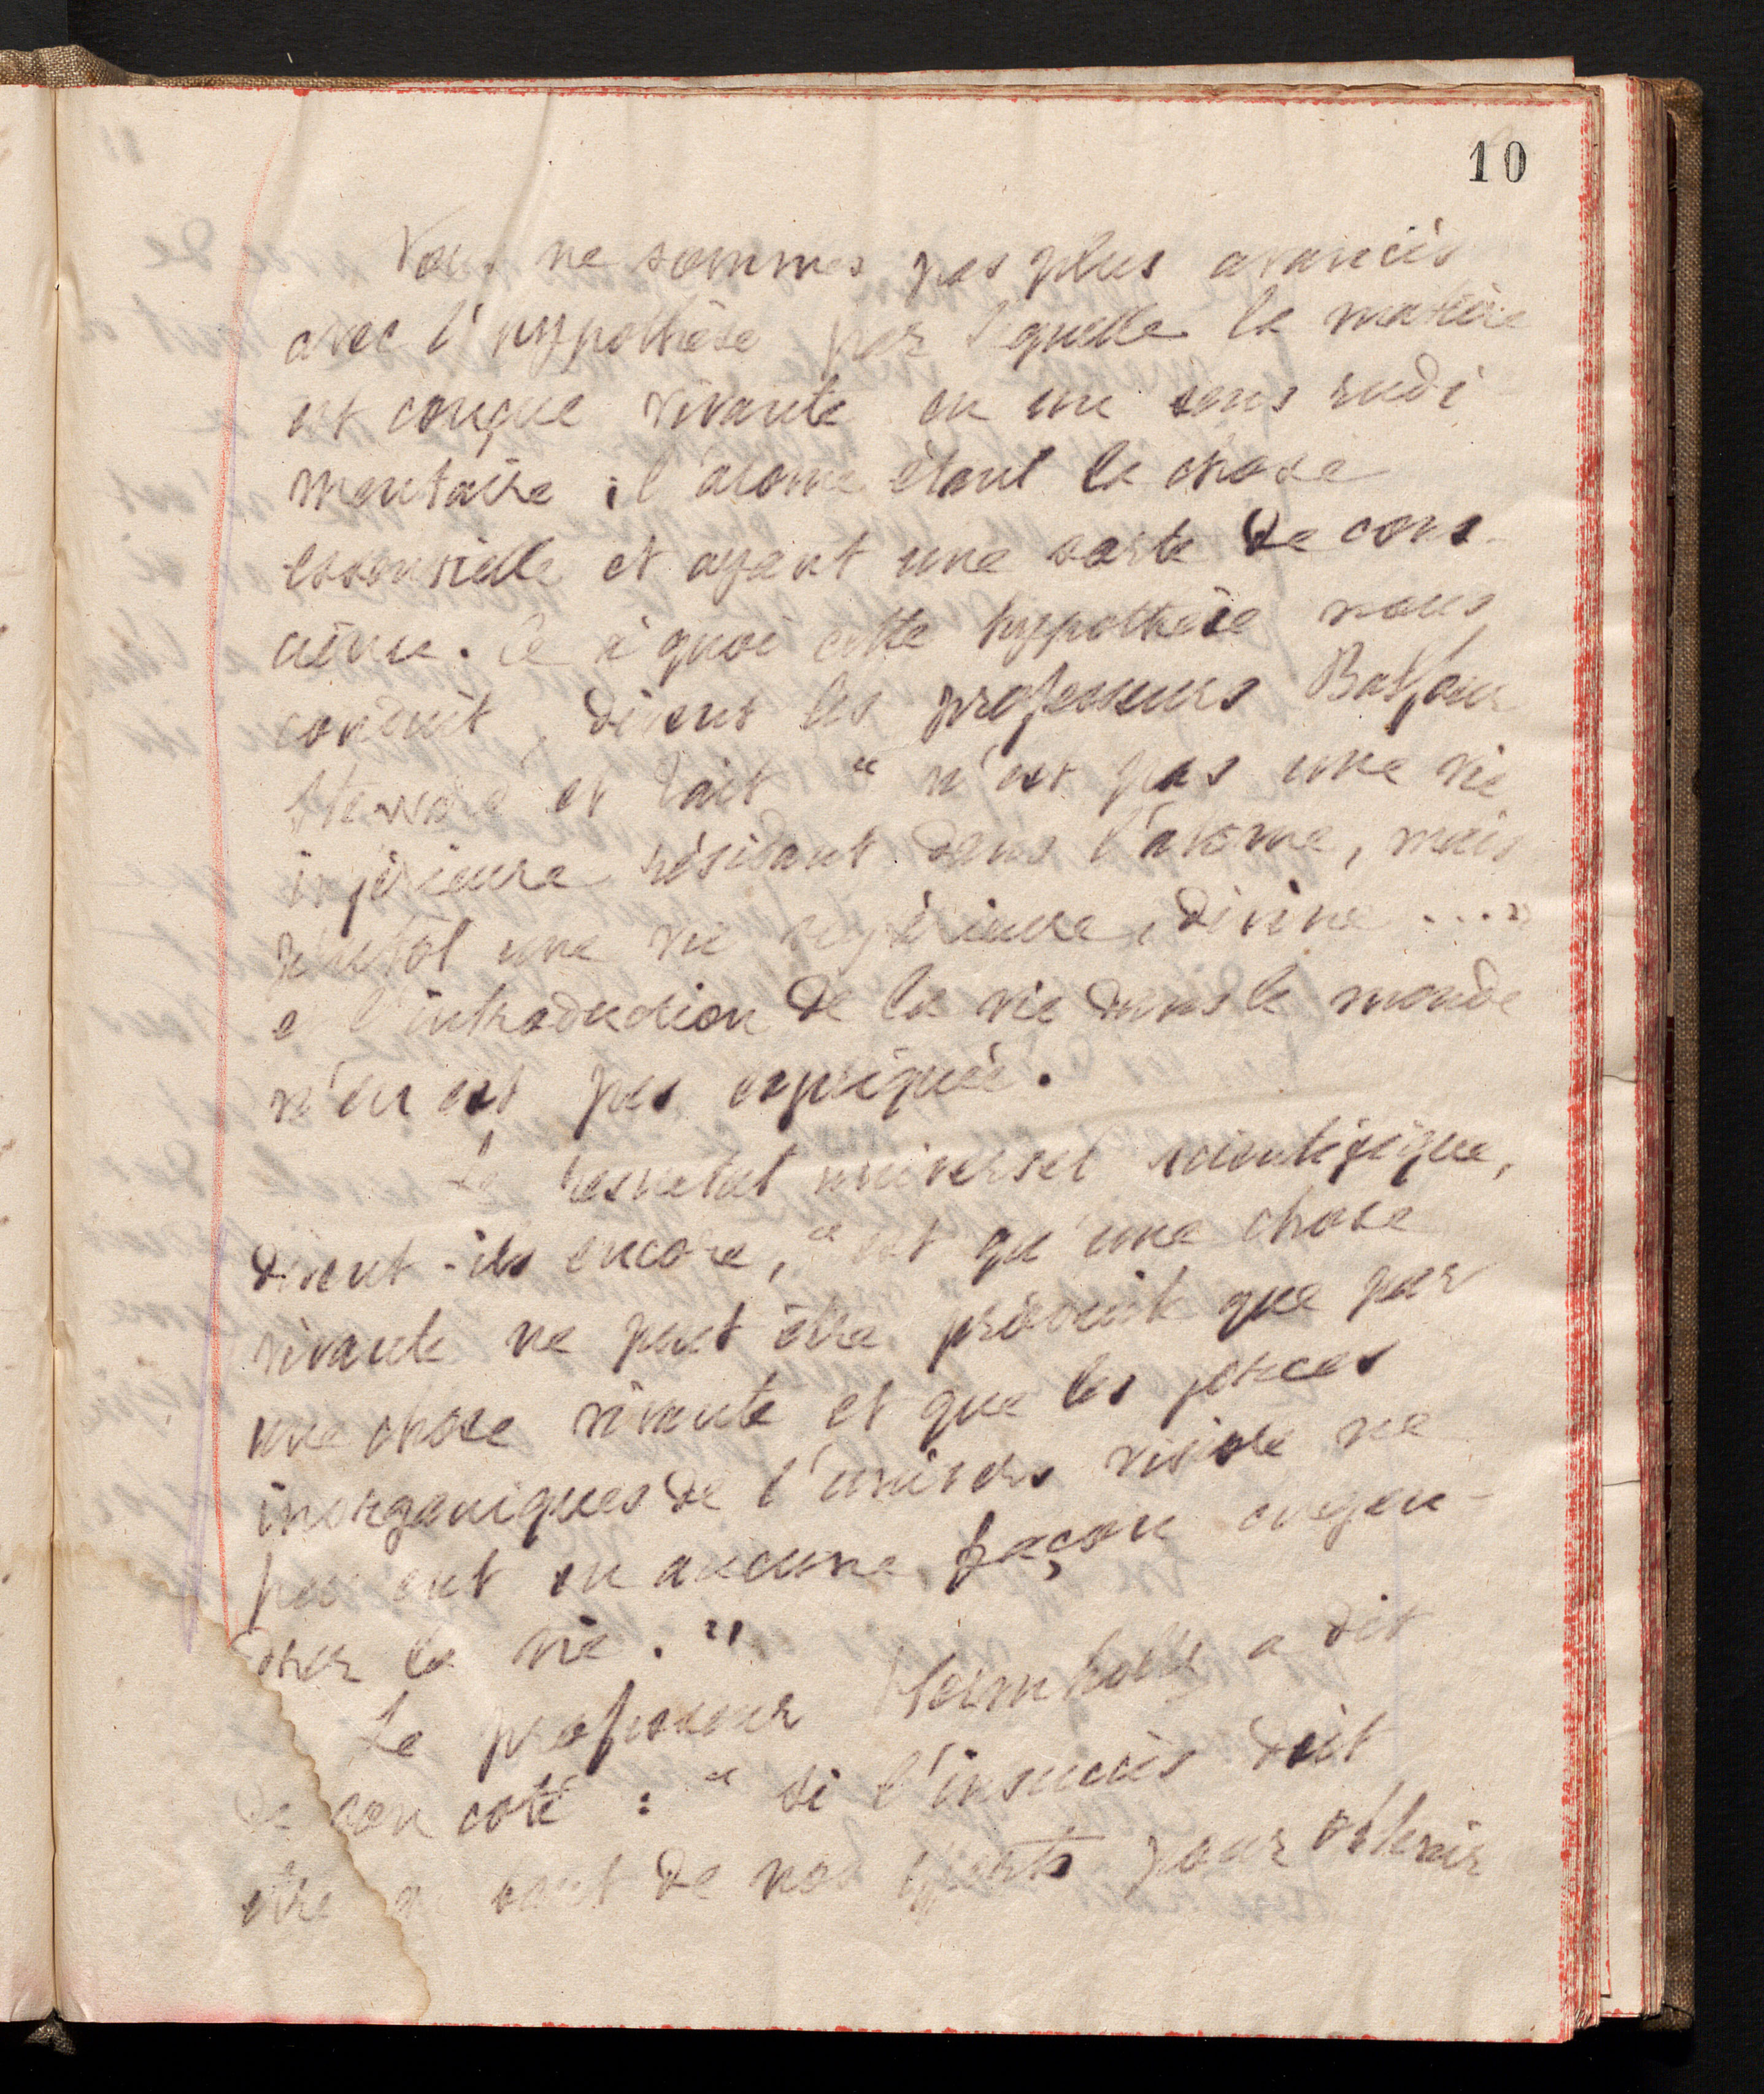 10
Nous ne sommes pas plus avancés
avec l'hypothèse par laquelle la matière
est conçue vivante en un sens rudi
mentaire ; l'atome étant la chose
essentielle et ayant une sorte de cons-
cience. Ce à quoi cette hypothèse nous
conduit, disent les professeurs Balfour
Steward et Tait " n'est pas une vie
inférieure résidant dans l'atome, mais
plutôt une vie supérieure, divine ...."
et l'introduction de la vie dans le monde
n'en est pas expliquée.
Le resultat universel scientifique,
disent-ils encore, " est qu'une chose
vivante ne peut être produite que par
une chose vivante et que les forces
inorganiques de l'univers visible ne
peuvent en aucune façon engen-
drer la vie. "
Le professeur Helmholtz a dit
de son coté : " si l'insuccès doit
etre de nos efforts pour obtenir